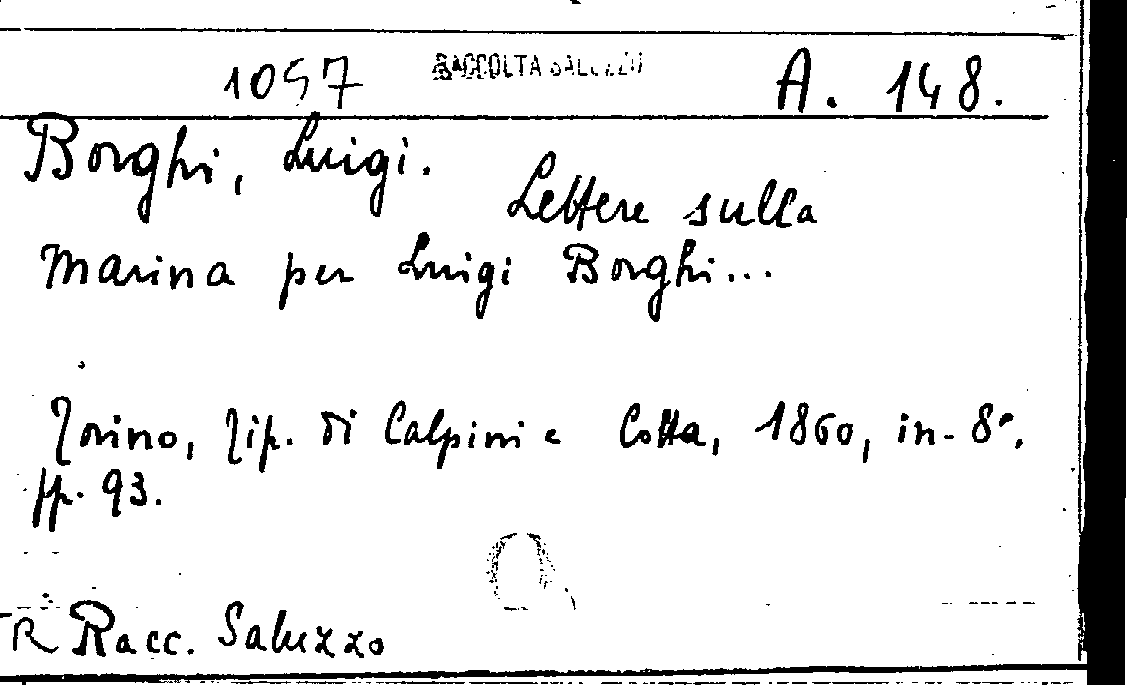 1057 RACCOLTA SALUZZO A. 148.
Borghi, Luigi.
Lettere sulla
Marina per Luigi Borghi...
Torino, Tip. di Calpini e Cotta, 1860, in-8°.
pp. 93.
R Racc. Saluzzo